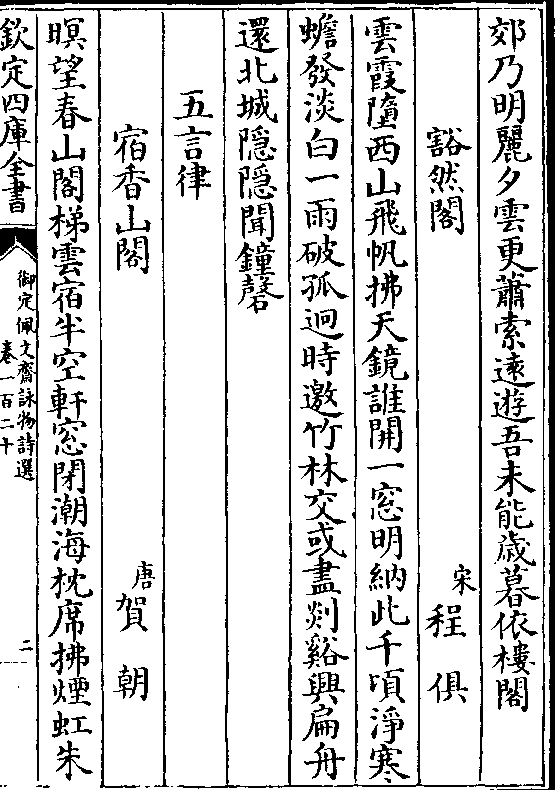 郊乃明麗夕雲更蕭索遠遊吾未能歳暮依樓閣
豁然閣　宋程俱
雲霞墮西山飛帆拂天鏡誰開一窓明納此千頃淨寒
蟾發淡白一雨破孤迥時邀竹林交或盡剡谿興扁舟
還北城隠隠聞鐘磬
五言律
宿香山閣　唐賀朝
暝望春山閣梯雲宿半空軒窓閉潮海枕席拂煙虹朱
欽定四庫全書
御定佩文齋詠物詩選
卷一百二十
二